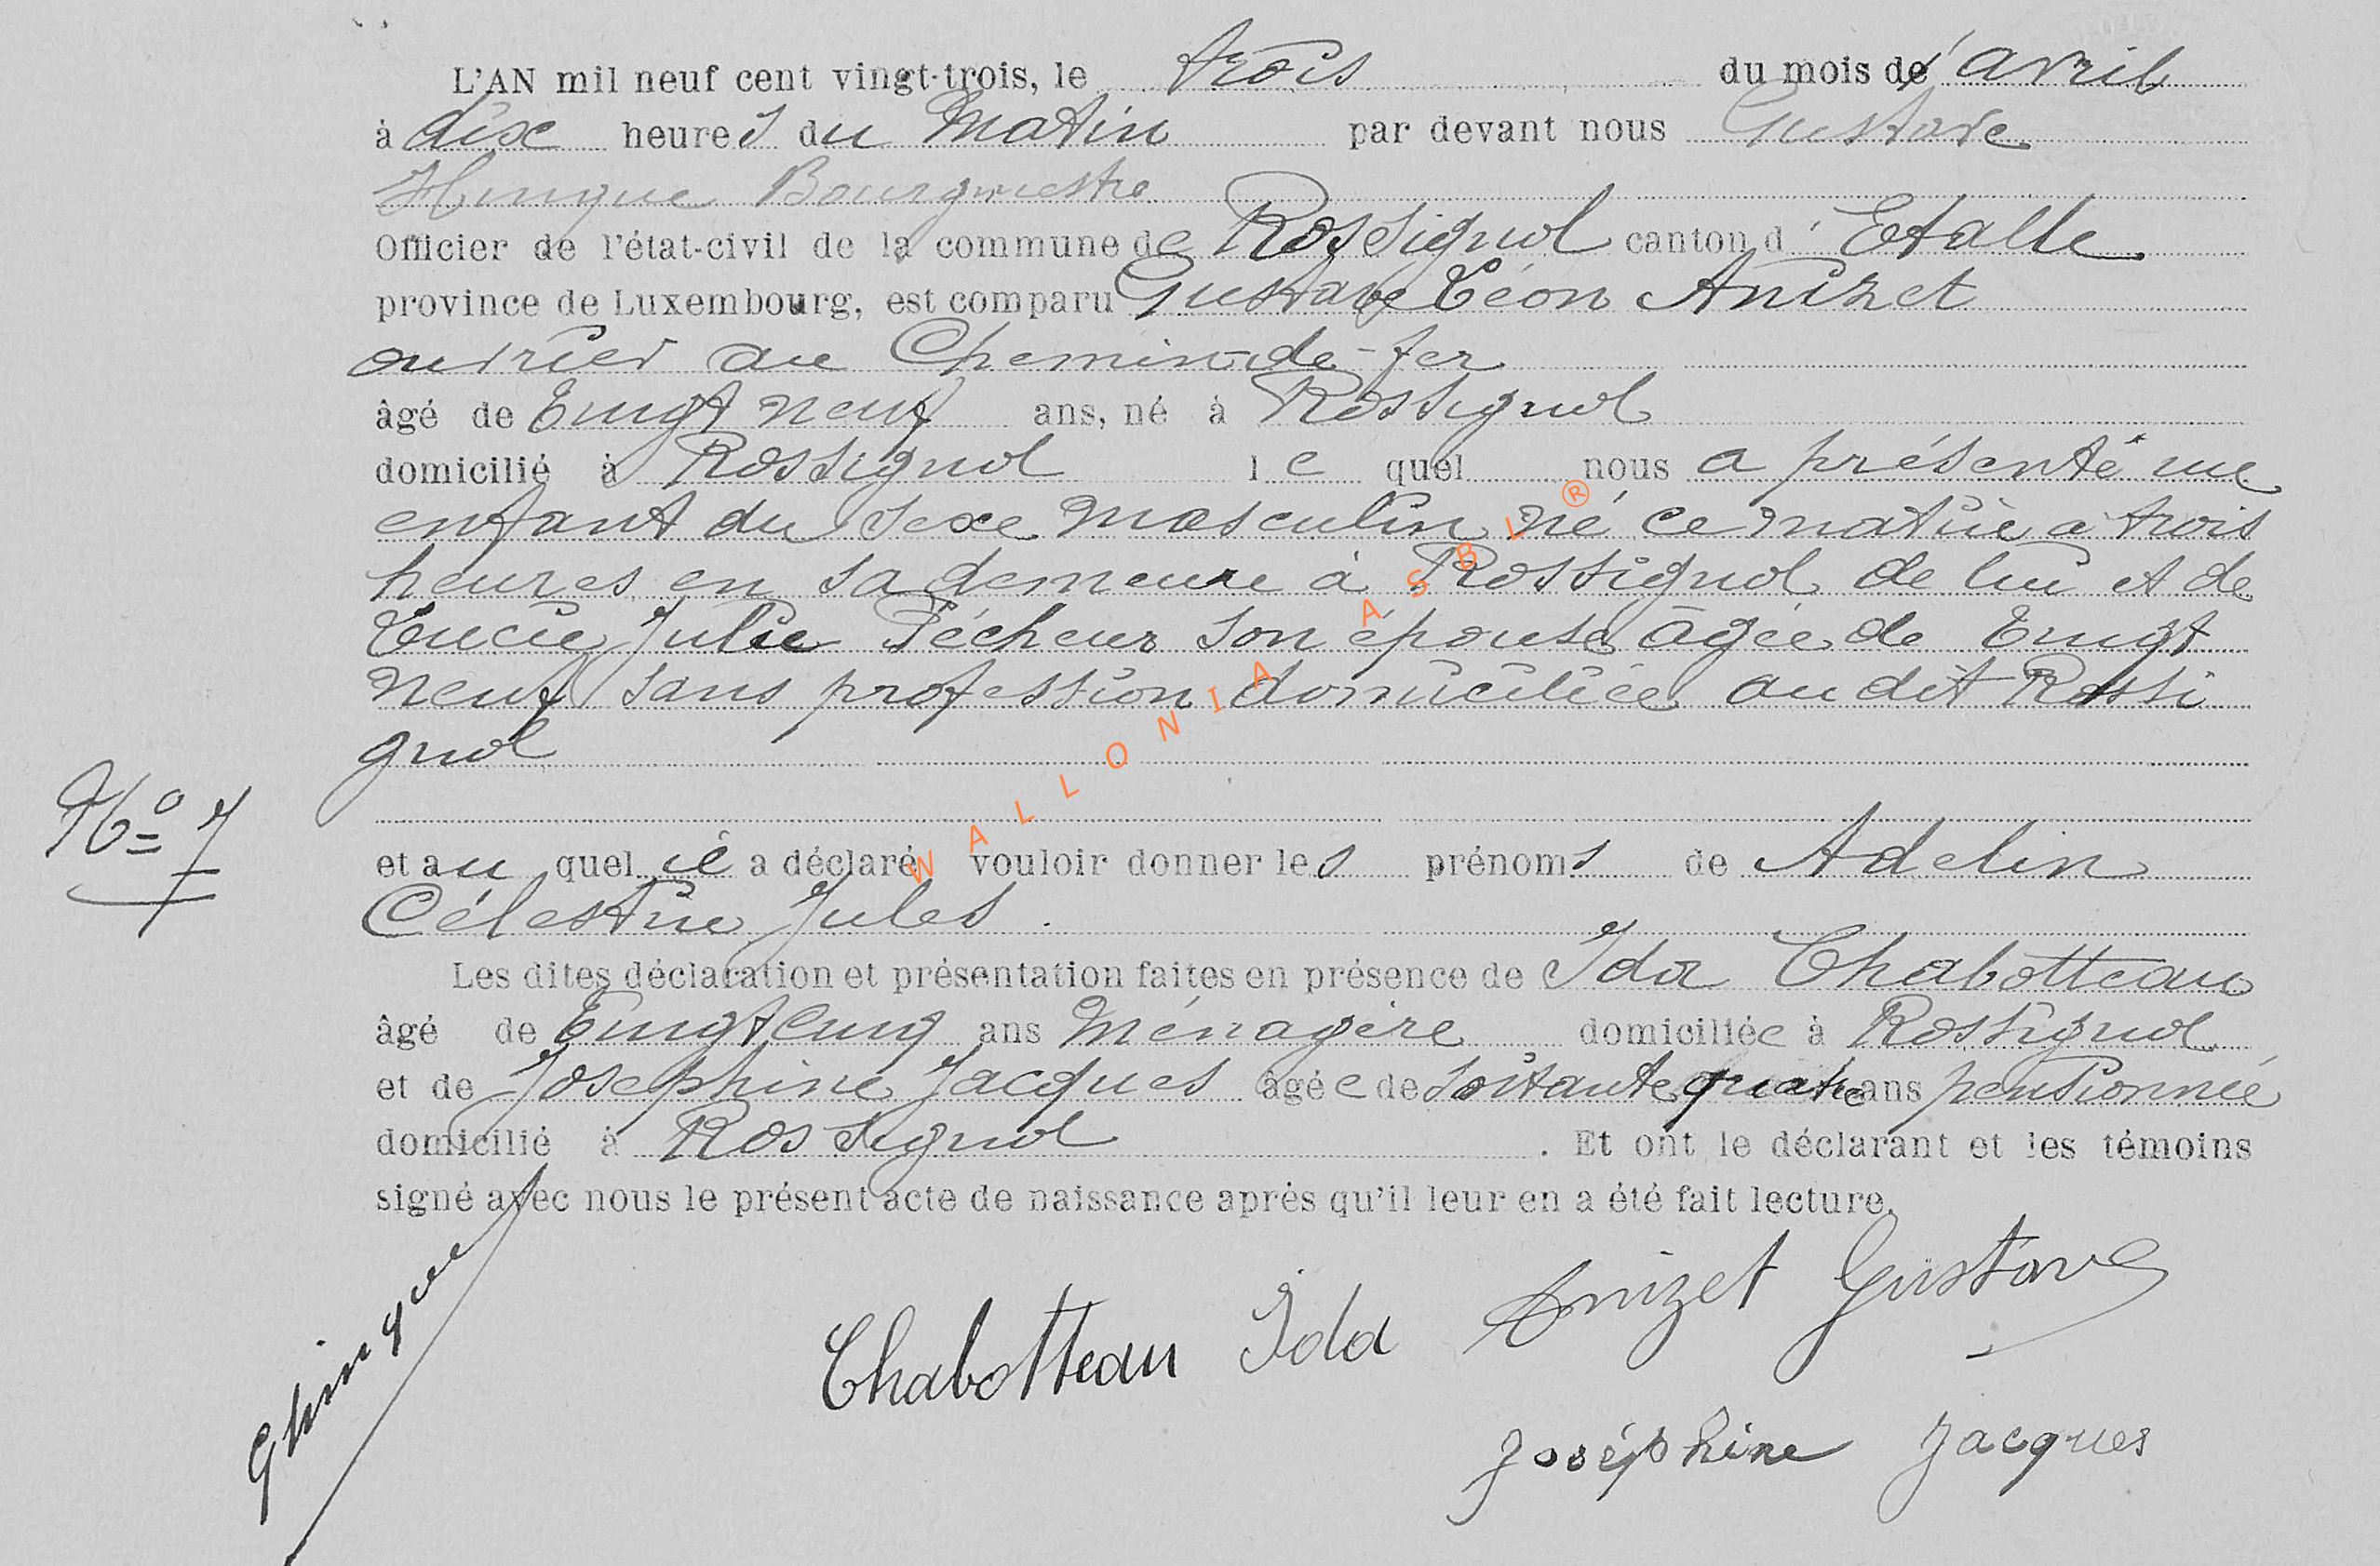 L'AN mil neuf cent vingt-trois, le trois du mois d'avril
à dixe heures du matin par devant nous Gustave
Hinque Bourgmestre
Officier de l'état-civil de la commune de Rossignol canton d'Etalle
province de Luxembourg, est comparu Gustave Léon Anizet
ouvrier au Chemin-de-fer
âgé de Vingt neuf ans, né à Rossignol
domicilié à Rossignol le quel nous a présenté un
enfant du sexe masculin né ce matin à trois
heures en sa demeure à Rossignol de lui et de
Lucie Julie Pécheur son épouse âgée de Vingt
neuf sans profession domiciliée au dit Rossi
gnol
N° 7
et au quel il a déclaré vouloir donner les prénoms de Adelin
Célestin Jules.
Les dites déclaration et présentation faites en présence de Ida Chabotteau
âgé de Vingt cinq ans Ménagère domiciliée à Rossignol
et de Joséphine Jacques âgée de soixante quatre ans pensionnée
domicilié à Rossignol. Et ont le déclarant et les témoins
signé avec nous le présent acte de naissance après qu'il leur en a été fait lecture.
Anizet Gustave
Chabotteau Ida
Joséphine Jacques
GHinque
WALLONIA ASBL ®